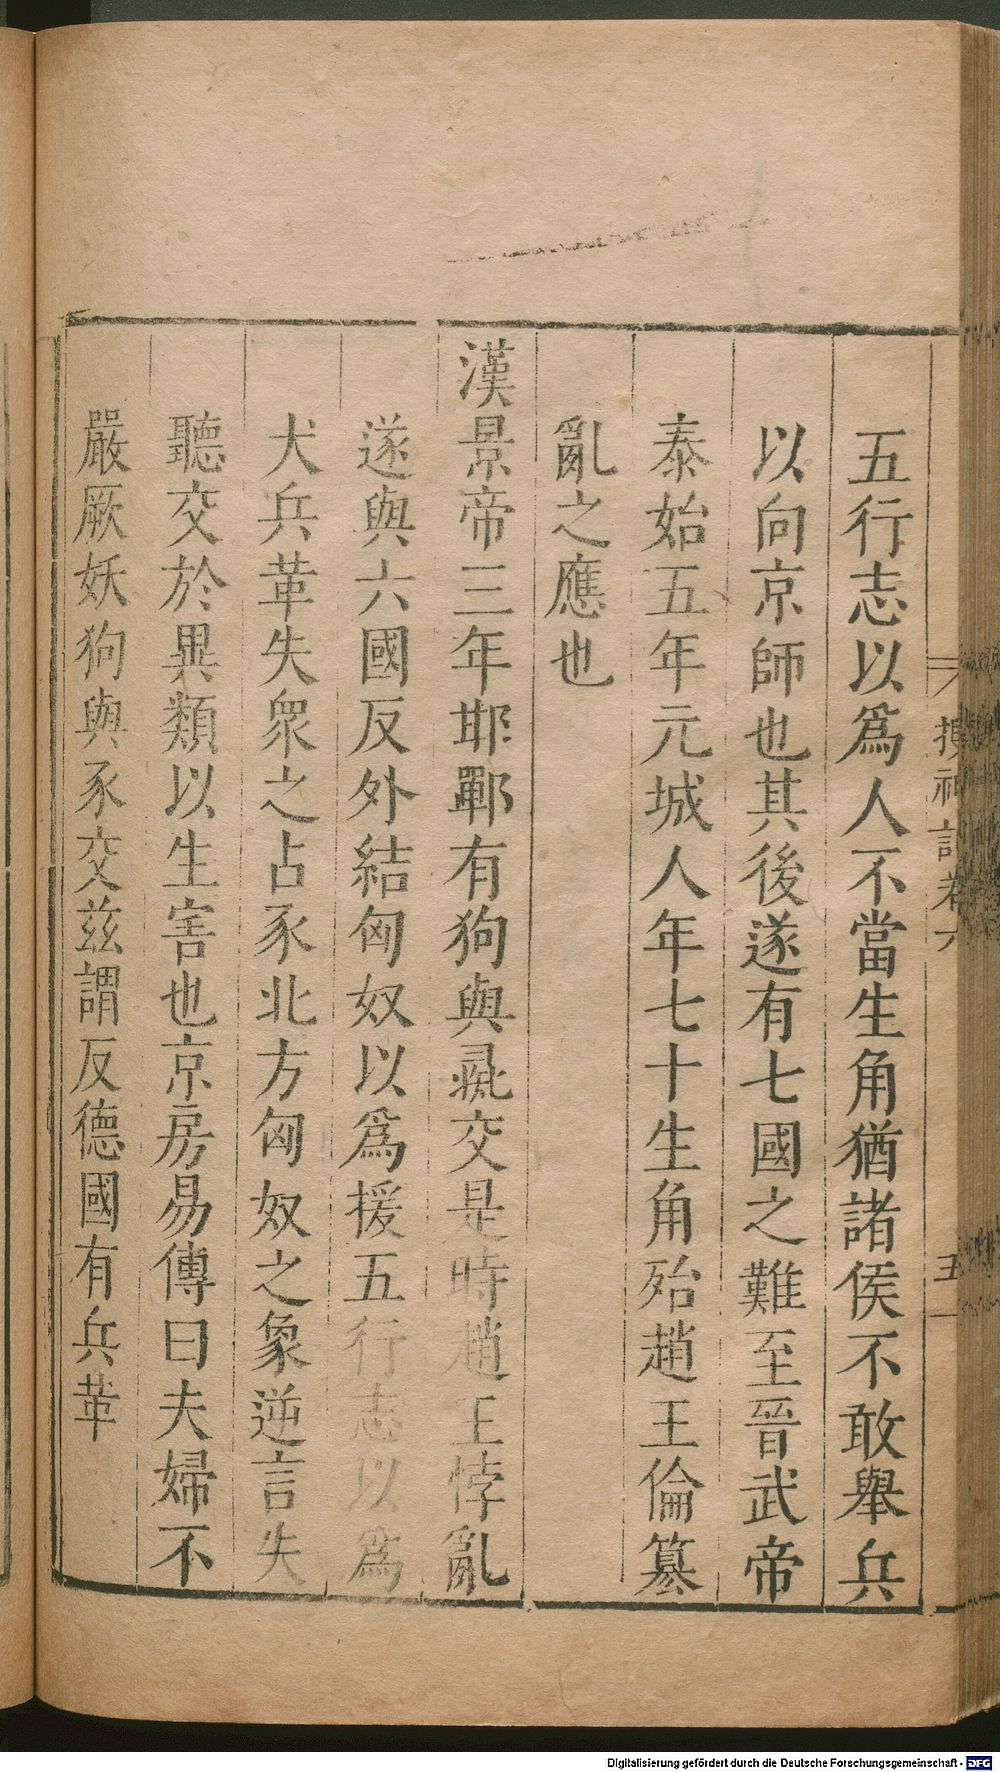 搜神記卷六
五
五行志以爲人不當生角猶諸侯不敢舉兵
以向京師也其後遂有七國之難至晉武帝
泰始五年元城人年七十生角殆趙王倫篡
亂之應也
漢景帝三年邯鄲有狗與彘交是時趙王悖亂
遂與六國反外結匈奴以爲援五行志以爲
犬兵革失衆之占豕北方匈奴之象逆言失
聽交於異類以生害也京房易傳曰夫婦不
嚴厥妖狗與豕交兹謂反德國有兵革
Digitalisierung gefördert durch die Deutsche Forschungsgemeinschaft - DFG